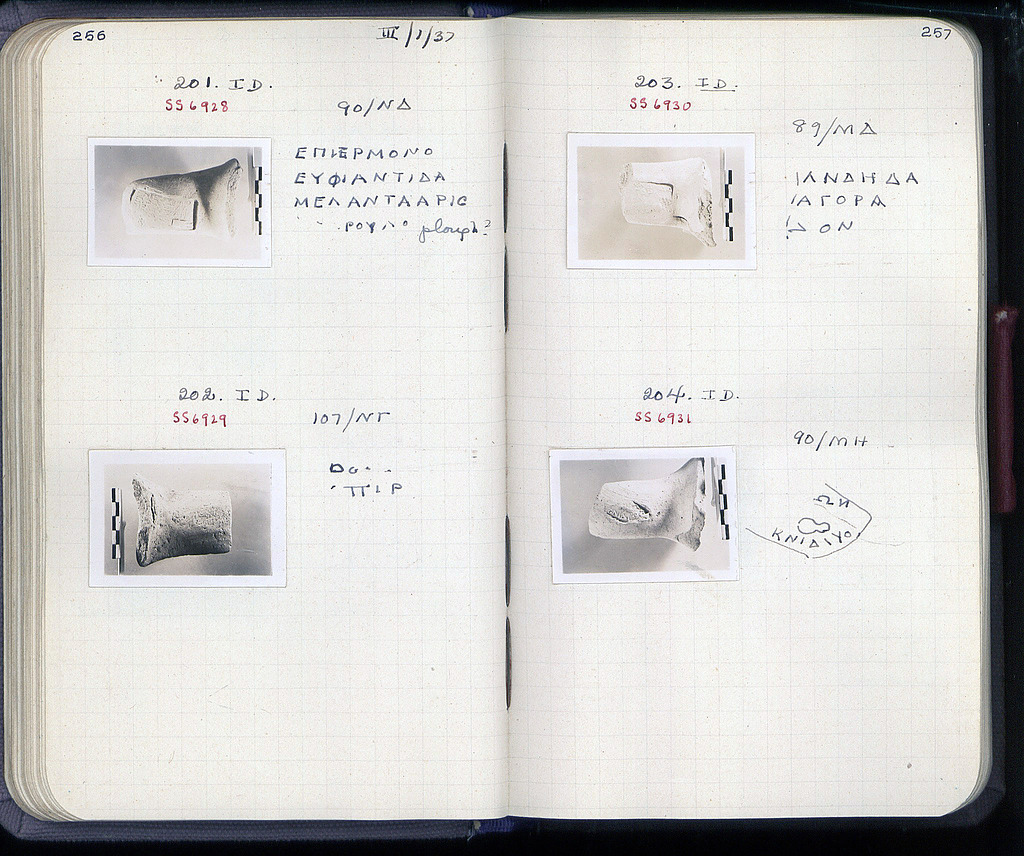 256
III/1/37
201. ID.
SS 6928
90/ΝΔ
ΕΠΙΕΡΜΟΝΟ
ΕΥΦΙΑΝΤΙΔΑ
ΜΕΛΑΝΤΑΑΡΙΟ
ΡΟΥΛΟ
202. ID.
SS6929
107/ΝΓ
ΠΙΡ
257
203. ID.
SS 6930
89/ΜΔ
ΙΛΝΔΗΔΑ
ΙΑΓΟΡΑ
ΟΝ
204. ID.
SS 6931
90/ΜΗ
ΚΝΙΔΙΥΟ